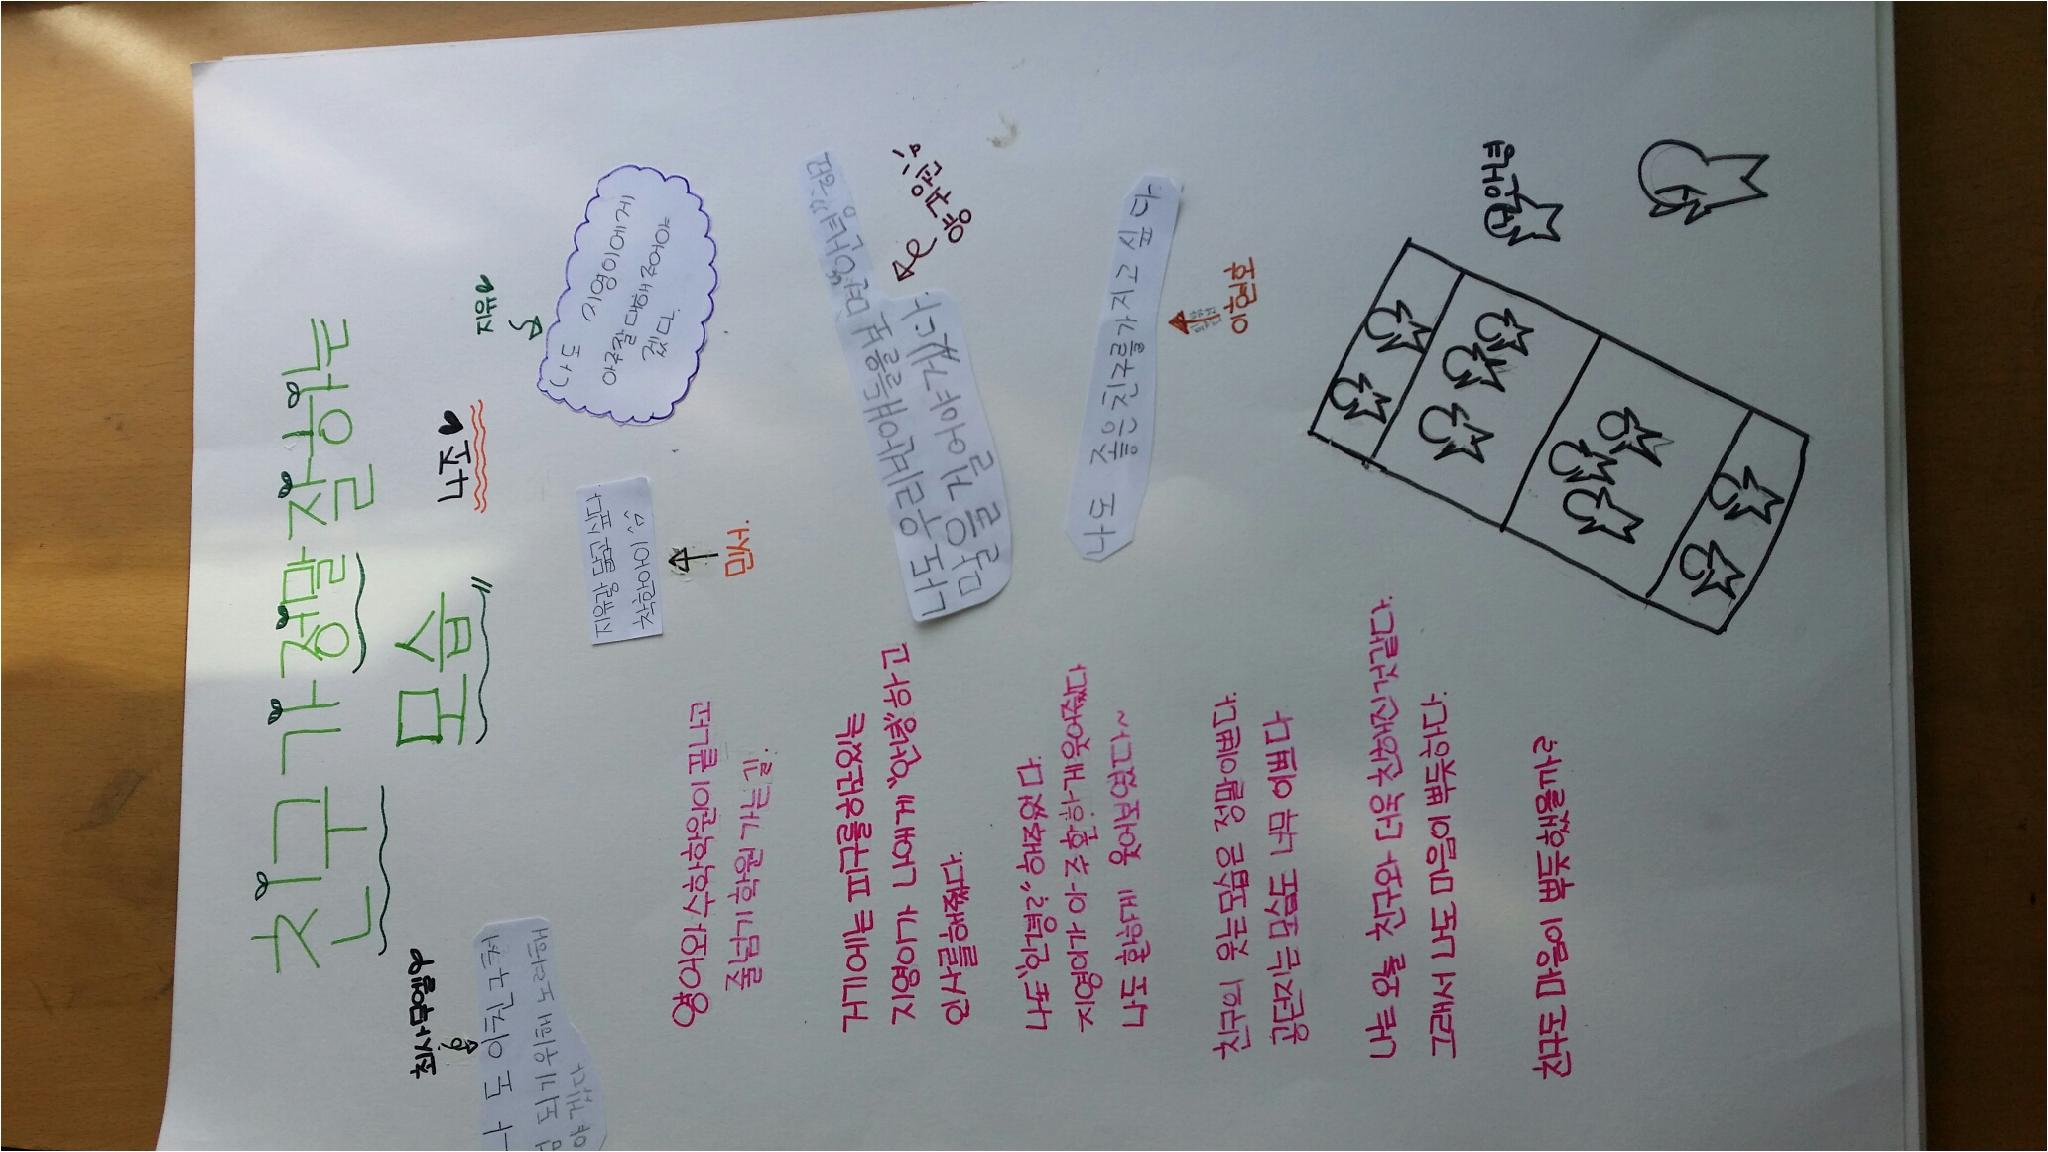 친구가 정말 잘하는
모습
4조
최사무엘
나도 이 친구처
럼 되기 위해 노력해
야겠다
지유
나도 지영이에게
아주 잘 대해 주어야
겠다.
지유랑 닮고 싶다.
착한 어린이 ^^
민서.
영어와 수학학원이 끝나고
줄넘기 학원 가는 길.
거기에는 피구를 하고있는
지영이가 나에게 "안녕"하고
인사를 해줬다.
나도 "안녕?" 해주었다.
지영이가 아주 환하게 웃어줬다
나도 환하게 웃어보였다~
나도 우리
마음을 길어야겠다.
나도 좋은 친구를 가지고 싶다.
이현호
친구의 웃는 모습은 정말 이쁘다.
공 던지는 모습도 너무 이쁘다
나는 오늘 친구와 더욱 친해진 것 같다.
그래서 나도 마음이 뿌듯하다.
친구도 마음이 뿌듯했을까?
안녕